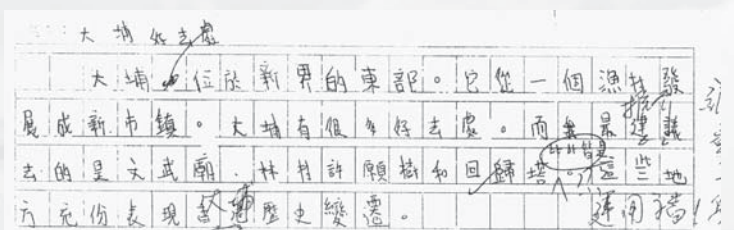 大埔好去處
大埔位於新界的東部。它從一個漁村發
展成新市鎮。大埔有很多好去處。而最建議
去的是文武廟、林村許願樹和回歸塔。這些地
方充份表現大埔歷史變遷。